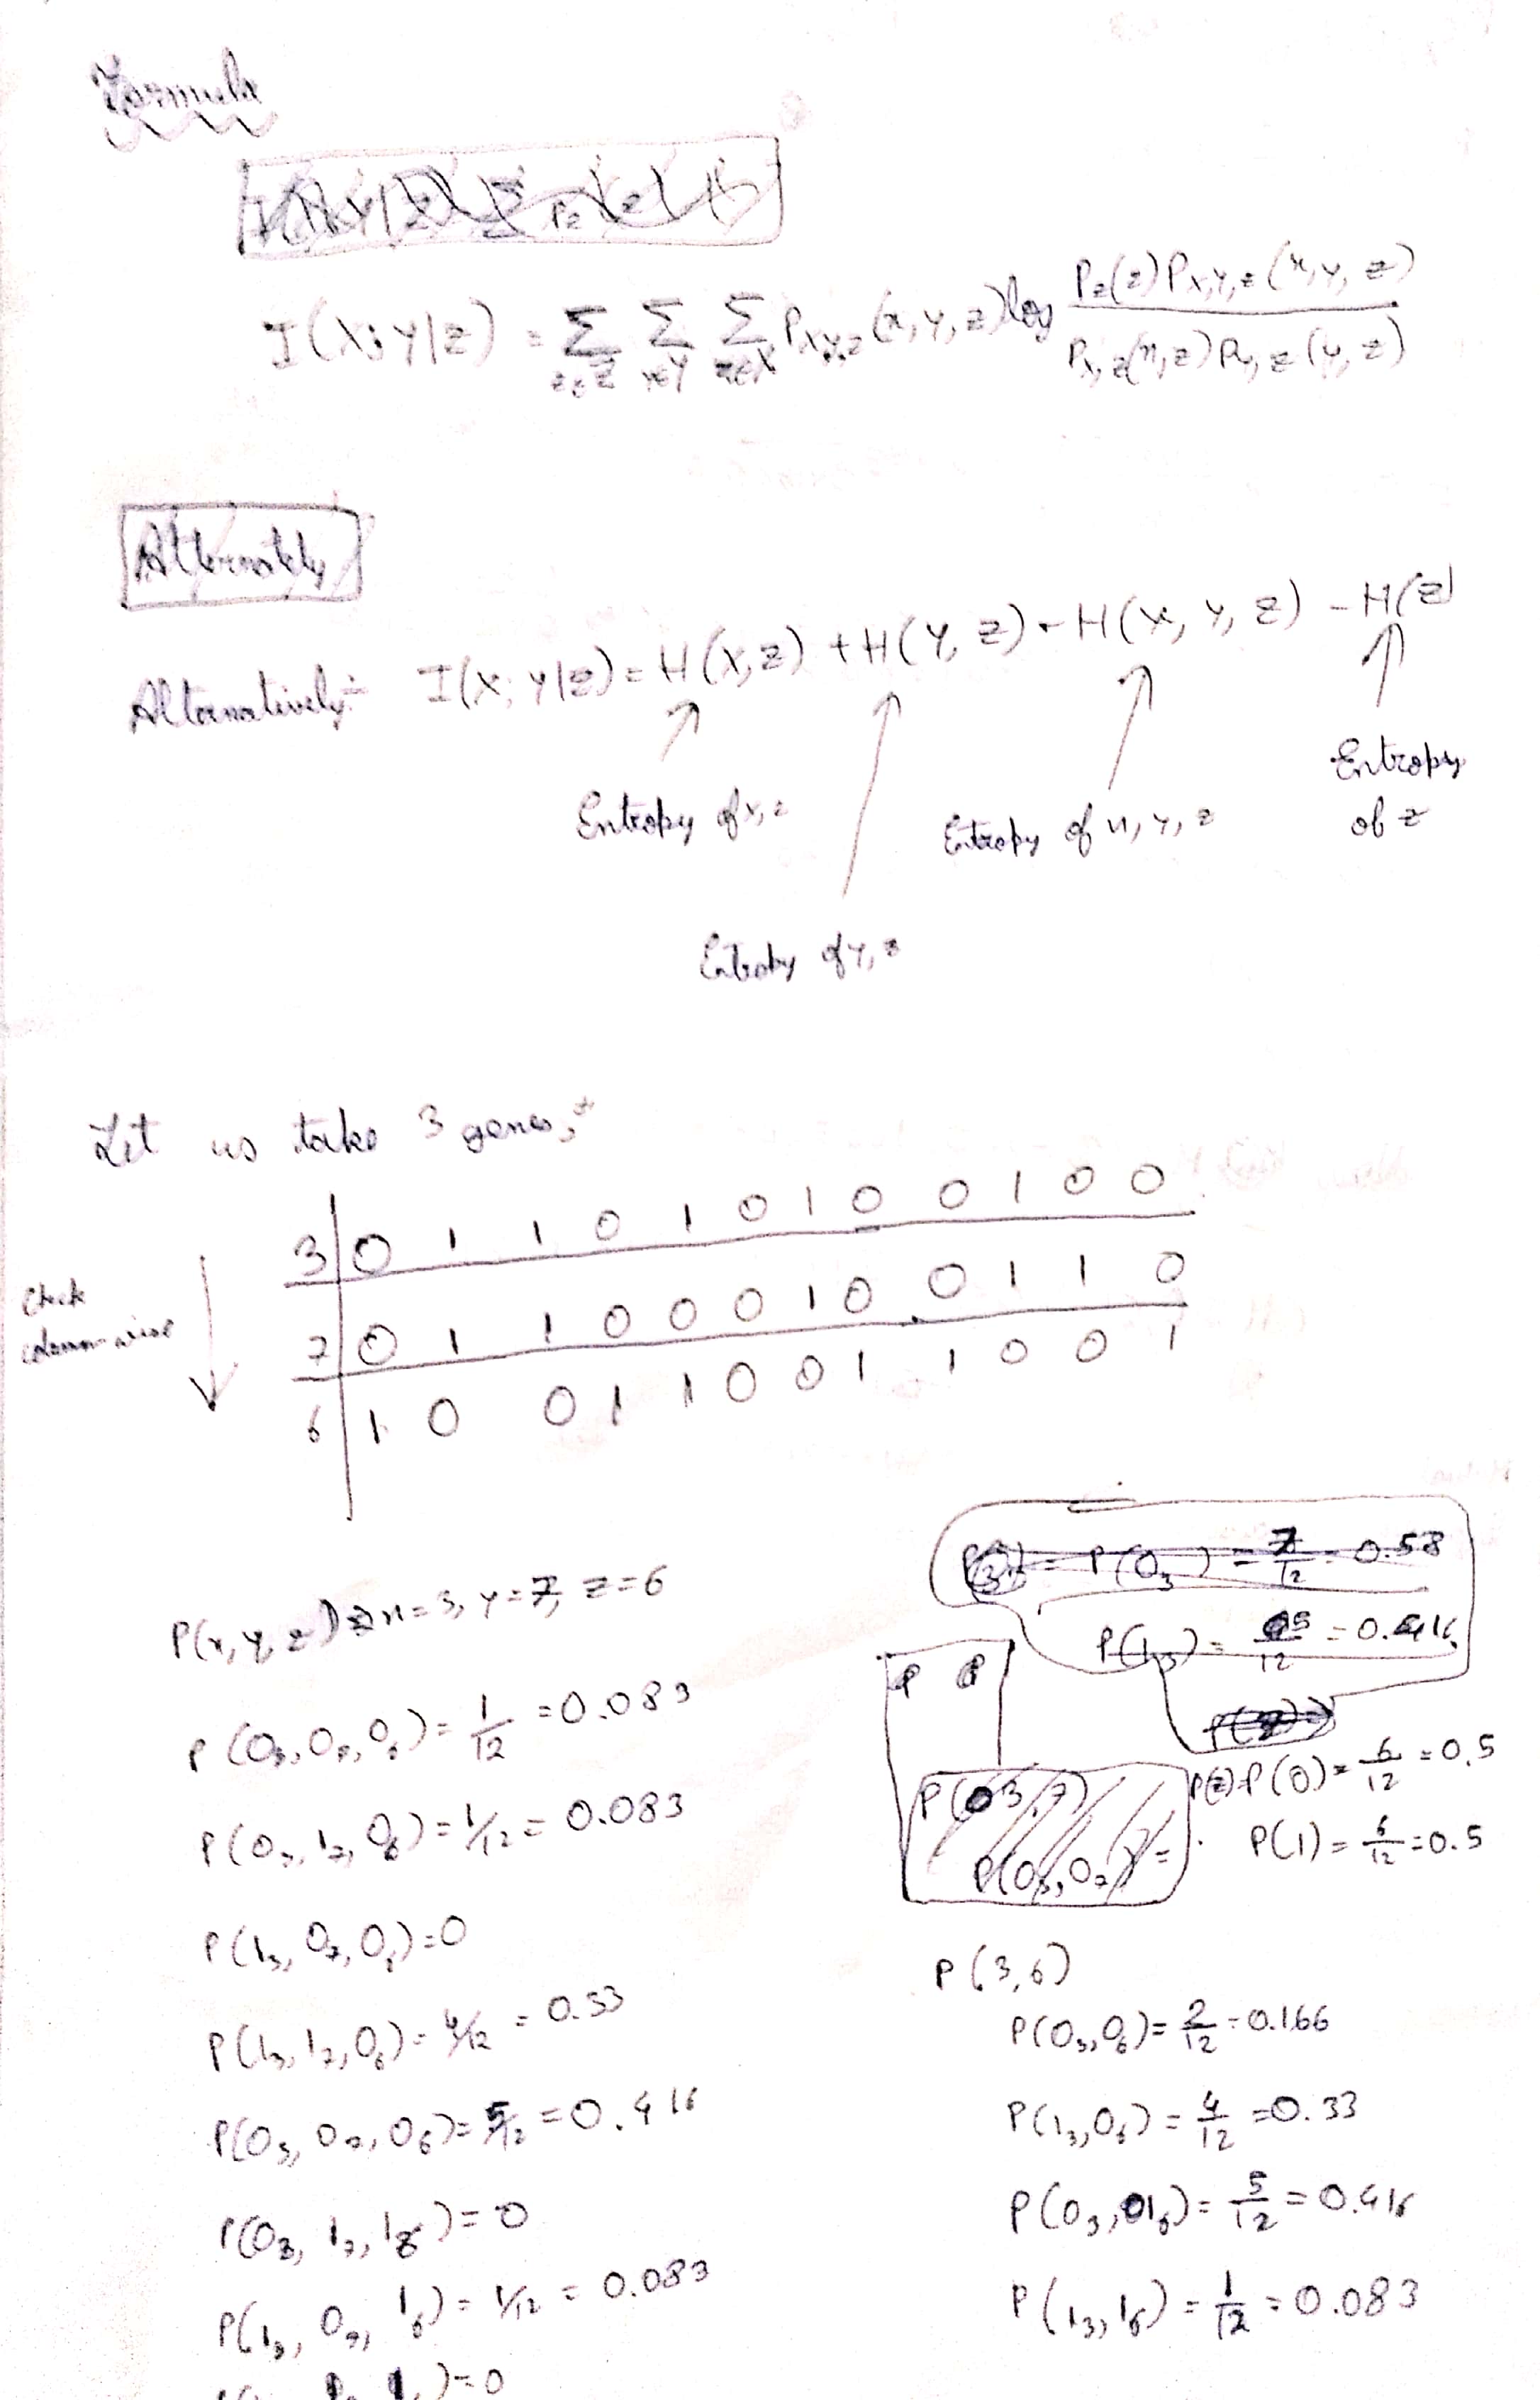 Formula
I(X;Y|Z) = Σ_{z∈Z} Σ_{y∈Y} Σ_{x∈X} P_{X,Y,Z}(x,y,z) log P_Z(z) P_{X,Y,Z}(x,y,z) / P_{X,Z}(x,z) P_{Y,Z}(y,z)
Alternately
Alternatively:- I(X;Y|Z) = H(X,Z) + H(Y,Z) - H(X,Y,Z) - H(Z)
Entropy of x,z
Entropy of x,y,z
Entropy of z
Entropy of y,z
Let us take 3 genes,
Check column-wise
3 | 0 1 1 0 1 0 1 0 0 1 0 0
7 | 0 1 1 0 0 0 1 0 0 1 1 0
6 | 1 0 0 1 1 0 0 1 1 0 0 1
P(x,y,z) x=3, y=7, z=6
P(0₃,0₇,0₆) = 1/12 = 0.083
P(0₃,1₇,0₆) = 1/12 = 0.083
P(1₃,0₇,0₆) = 0
P(1₃,1₇,0₆) = 4/12 = 0.33
P(0₃,0₇,0₆) = 5/12 = 0.416
P(0₃,1₇,1₆) = 0
P(1₃,0₇,1₆) = 1/12 = 0.083
) = 0
P(3) = P(0₃) = 7/12 = 0.58
P(1₃) = 5/12 = 0.416
P P
P(3,7)
P(0₃,0₇) =
P(z) P(0) = 6/12 = 0.5
P(1) = 6/12 = 0.5
P(3,6)
P(0₃,0₆) = 2/12 = 0.166
P(1₃,0₆) = 4/12 = 0.33
P(0₃,1₆) = 5/12 = 0.416
P(1₃,1₆) = 1/12 = 0.083